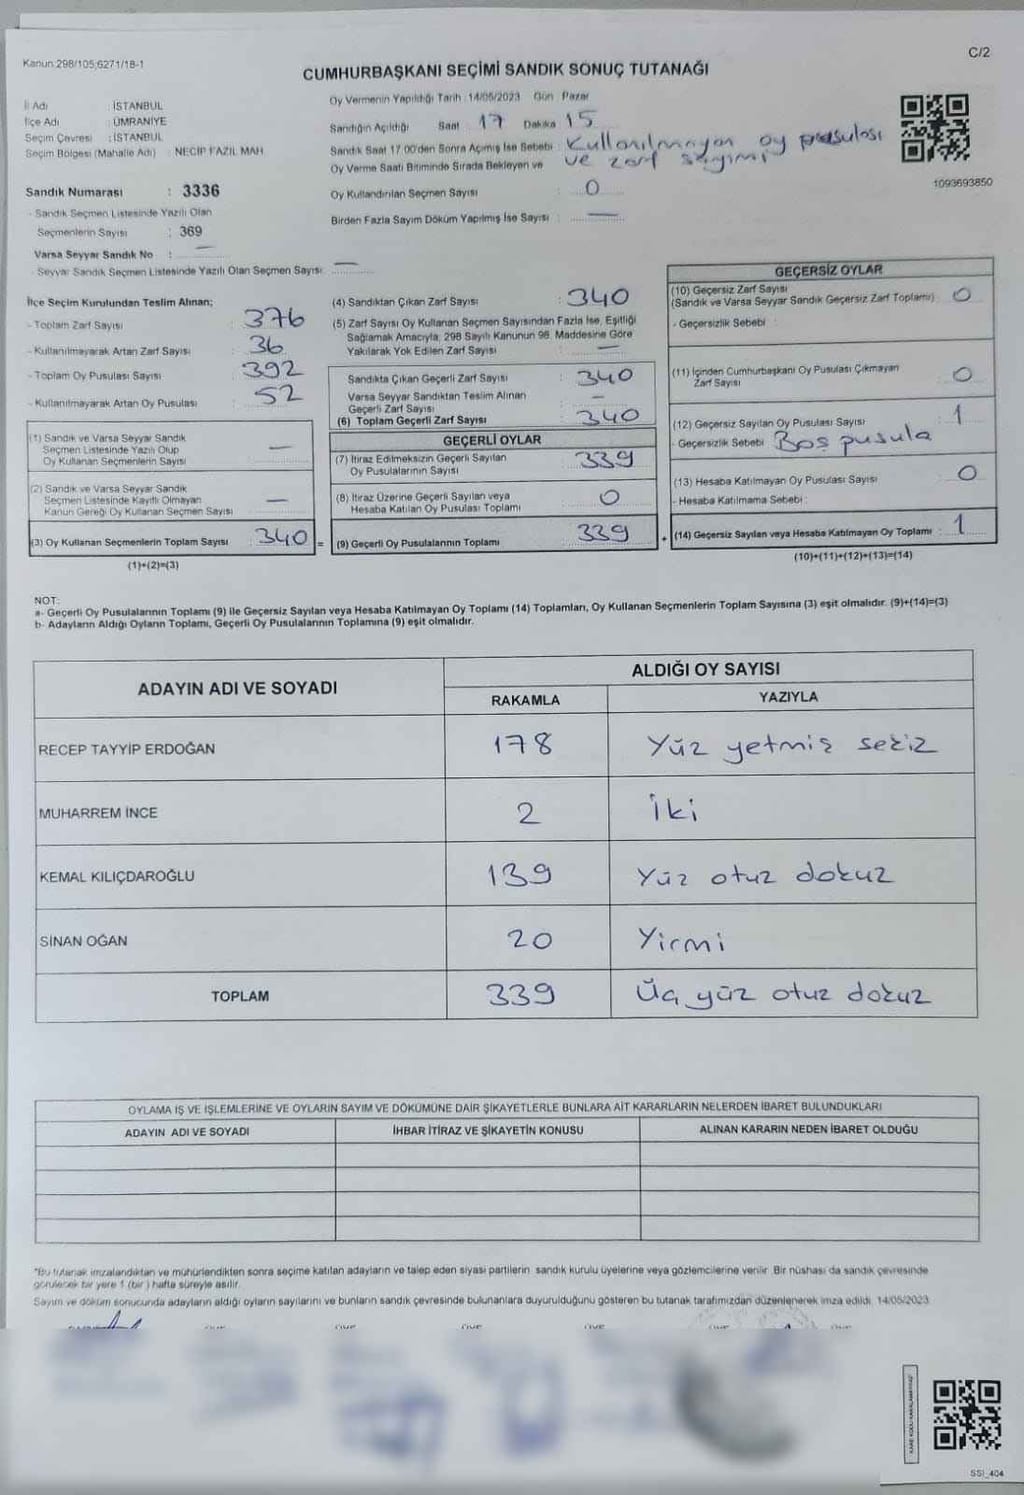 Kanun:298/105;6271/18-1
C/2
CUMHURBAŞKANI SEÇİMİ SANDIK SONUÇ TUTANAĞI
İl Adı : İSTANBUL
İlçe Adı : ÜMRANİYE
Seçim Çevresi : İSTANBUL
Seçim Bölgesi (Mahalle Adı) : NECİP FAZIL MAH.
Sandık Numarası : 3336
- Sandık Seçmen Listesinde Yazılı Olan
Seçmenlerin Sayısı : 369
Varsa Seyyar Sandık No : —
- Seyyar Sandık Seçmen Listesinde Yazılı Olan Seçmen Sayısı : —
Oy Vermenin Yapıldığı Tarih :14/05/2023 Gün : Pazar
Sandığın Açıldığı Saat : 17 Dakika : 15
Sandık Saat 17.00'den Sonra Açılmış İse Sebebi : Kullanılmayan oy pusulası
ve zarf sayımı
Oy Verme Saati Bitiminde Sırada Bekleyen ve
Oy Kullandırılan Seçmen Sayısı : 0
Birden Fazla Sayım Döküm Yapılmış İse Sayısı : —
1093693850
İlçe Seçim Kurulundan Teslim Alınan;
- Toplam Zarf Sayısı : 376
- Kullanılmayarak Artan Zarf Sayısı : 36
- Toplam Oy Pusulası Sayısı : 392
- Kullanılmayarak Artan Oy Pusulası : 52
(1) Sandık ve Varsa Seyyar Sandık
Seçmen Listesinde Yazılı Olup
Oy Kullanan Seçmenlerin Sayısı —
(2) Sandık ve Varsa Seyyar Sandık
Seçmen Listesinde Kayıtlı Olmayan
Kanun Gereği Oy Kullanan Seçmen Sayısı —
(3) Oy Kullanan Seçmenlerin Toplam Sayısı : 340 =
(1)+(2)=(3)
(4) Sandıktan Çıkan Zarf Sayısı : 340
(5) Zarf Sayısı Oy Kullanan Seçmen Sayısından Fazla İse, Eşitliği
Sağlamak Amacıyla, 298 Sayılı Kanunun 98. Maddesine Göre
Yakılarak Yok Edilen Zarf Sayısı : —
Sandıkta Çıkan Geçerli Zarf Sayısı : 340
Varsa Seyyar Sandıktan Teslim Alınan
Geçerli Zarf Sayısı : —
(6) Toplam Geçerli Zarf Sayısı : 340
GEÇERLİ OYLAR
(7) İtiraz Edilmeksizin Geçerli Sayılan
Oy Pusulalarının Sayısı : 339
(8) İtiraz Üzerine Geçerli Sayılan veya
Hesaba Katılan Oy Pusulası Toplamı : 0
(9) Geçerli Oy Pusulalarının Toplamı : 339 +
GEÇERSİZ OYLAR
(10) Geçersiz Zarf Sayısı
(Sandık ve Varsa Seyyar Sandık Geçersiz Zarf Toplamı) : 0
- Geçersizlik Sebebi :
(11) İçinden Cumhurbaşkanı Oy Pusulası Çıkmayan
Zarf Sayısı : 0
(12) Geçersiz Sayılan Oy Pusulası Sayısı : 1
- Geçersizlik Sebebi : Boş pusula
(13) Hesaba Katılmayan Oy Pusulası Sayısı : 0
- Hesaba Katılmama Sebebi :
(14) Geçersiz Sayılan veya Hesaba Katılmayan Oy Toplamı : 1
(10)+(11)+(12)+(13)=(14)
NOT:
a- Geçerli Oy Pusulalarının Toplamı (9) ile Geçersiz Sayılan veya Hesaba Katılmayan Oy Toplamı (14) Toplamları, Oy Kullanan Seçmenlerin Toplam Sayısına (3) eşit olmalıdır. (9)+(14)=(3)
b- Adayların Aldığı Oyların Toplamı, Geçerli Oy Pusulalarının Toplamına (9) eşit olmalıdır.
ADAYIN ADI VE SOYADI
ALDIĞI OY SAYISI
RAKAMLA YAZIYLA
RECEP TAYYİP ERDOĞAN 178 Yüz yetmiş sekiz
MUHARREM İNCE 2 İki
KEMAL KILIÇDAROĞLU 139 Yüz otuz dokuz
SİNAN OĞAN 20 Yirmi
TOPLAM 339 Üç yüz otuz dokuz
OYLAMA İŞ VE İŞLEMLERİNE VE OYLARIN SAYIM VE DÖKÜMÜNE DAİR ŞİKAYETLERLE BUNLARA AİT KARARLARIN NELERDEN İBARET BULUNDUKLARI
ADAYIN ADI VE SOYADI İHBAR İTİRAZ VE ŞİKAYETİN KONUSU ALINAN KARARIN NEDEN İBARET OLDUĞU
*Bu tutanak imzalandıktan ve mühürlendikten sonra seçime katılan adayların ve talep eden siyasi partilerin sandık kurulu üyelerine veya gözlemcilerine verilir. Bir nüshası da sandık çevresinde
görülecek bir yere 1 (bir) hafta süreyle asılır.
Sayım ve döküm sonucunda adayların aldığı oyların sayılarını ve bunların sandık çevresinde bulunanlara duyurulduğunu gösteren bu tutanak tarafımızdan düzenlenerek imza edildi. 14/05/2023
SSI_404